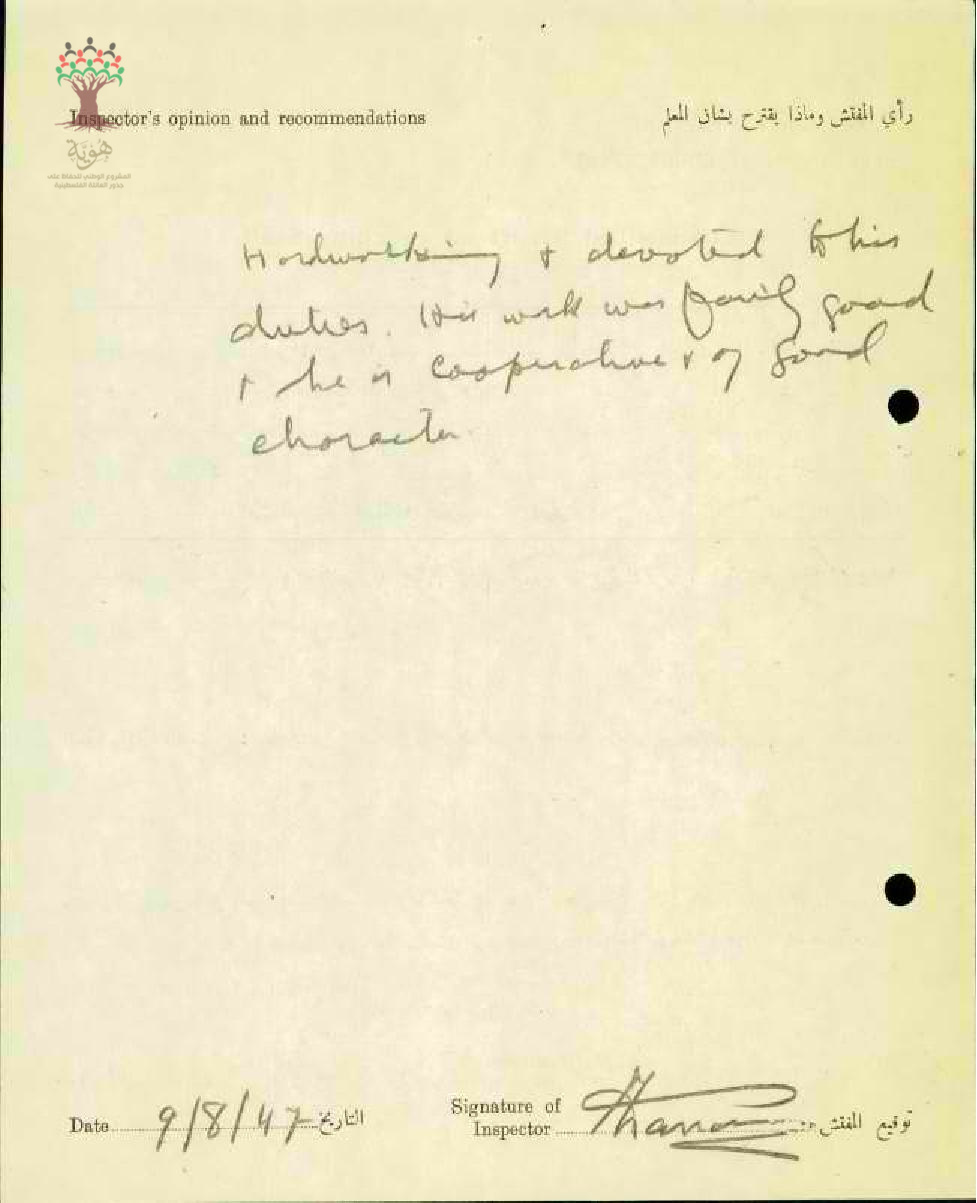 Inspector's opinion and recommendations
رأي المفتش وماذا يقترح بشأن المعلم
هوية
المشروع الوطني للحفاظ على
جذور العائلة الفلسطينية
Hardworking & devoted to his
duties. His work was fairly good
& he is cooperative & of good
character.
Date 9/8/47 التاريخ
Signature of
Inspector توقيع المفتش